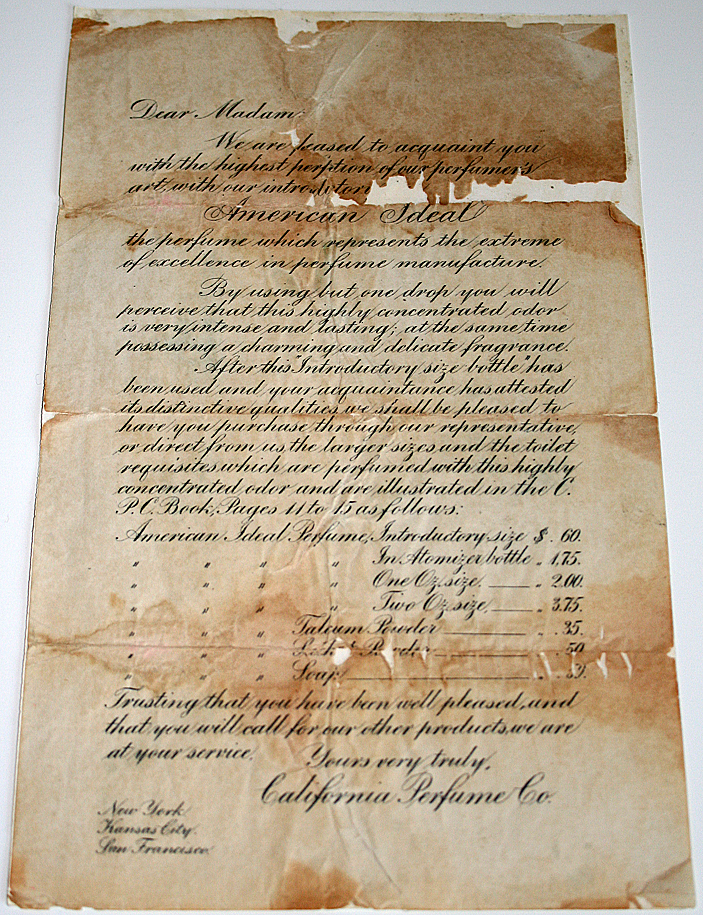 Dear Madam:
We are feased to acquaint you
with the highest perption of our perfumer's
art, with our introductory
American Ideal
the perfume which represents the extreme
of excellence in perfume manufacture.
By using but one drop you will
perceive that this highly concentrated odor
is very intense and lasting; at the same time
possessing a charming and delicate fragrance.
After this "Introductory size bottle" has
been used and your acquaintance has attested
its distinctive qualities, we shall be pleased to
have you purchase through our representative,
or direct from us, the larger sizes and the toilet
requisites which are perfumed with this highly
concentrated odor and are illustrated in the C.
P. C. Book, Pages 11 to 15 as follows:
American Ideal Perfume, Introductory size $ .60.
" " " " In Atomizer bottle " 1.75.
" " " " One Oz. size, " 2.00.
" " " " Two Oz. size, " 3.75.
" " " Talcum Powder " .35.
" " " Powder " .50
" " " Soap "
Trusting that you have been well pleased, and
that you will call for our other products, we are
at your service.
Yours very truly,
California Perfume Co.
New York.
Kansas City.
San Francisco.